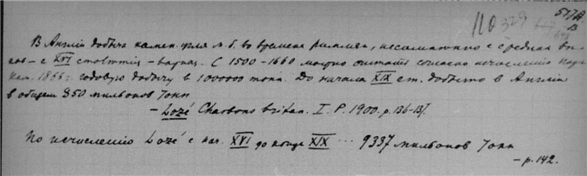 5178
110 329
В Англии добыча камен. угля м. б. во времена римлян, несомнительно с средних ве-
ков - с XVI столѣтия - важная. С 1500-1660 можно считать согласно исчислению
кам. 1866 г. годовую добычу в 100000 тонн. До начала XIX ст. добыто в Англии
в общем 850 мильонов тонн
- Lozé Charbons britan. I. P. 1900. p. 136-137.
По исчислению Lozé с нач. XVI до конца XIX ... 9337 мильонов тонн
- p. 142.